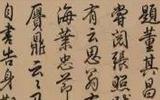 題董其昌
嘗閱張照
有云思翁
海葉忠節
贗鼎云云
自書告身